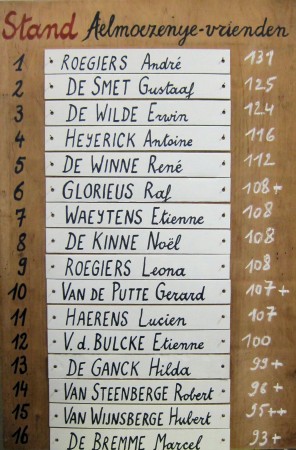 Stand Aelmoezenye-vrienden
1 ROEGIERS André 131
2 DE SMET Gustaaf 125
3 DE WILDE Erwin 124
4 HEYERICK Antoine 116
5 DE WINNE René 112
6 GLORIEUS Raf 108+
7 WAEYTENS Etienne 108
8 DE KINNE Noël 108
9 ROEGIERS Leona 108
10 VAN DE PUTTE Gerard 107+
11 HAERENS Lucien 107
12 V.d. BULCKE Etienne 100
13 DE GANCK Hilda 99+
14 VAN STEENBERGE Robert 96+
15 VAN WIJNSBERGE Hubert 95++
16 DE BREMME Marcel 93+